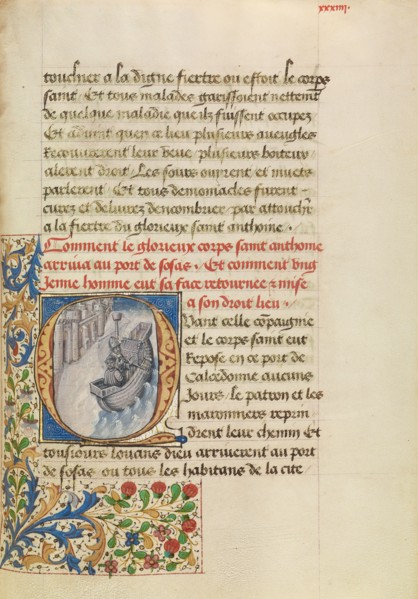 xxxiiij.
touchier a la digne fiertre ou estoit le corps
saint · Et tous malades garissoient nettement
de quelque maladie que ilz fuissent occupez
Et aduint quen ce lieu plusieurs aueugles
Recouurerent leur veue plusieurs boiteux
alerent droit · Les sours ouirent et muets
parlerent · Et tous demoniacles furent
curez et deliurez dencombrier par attouchier
a la fiertre du glorieux saint anthoine ·
Comment le glorieux corps saint anthoine
arriua au port de sosas · Et comment vng
Jenne homme eut sa face retournee & mise
a son droit lieu ·
Quant celle compaignie
et le corps saint eut
Repose en ce port de
Calcedonne aucuns
Jours / le patron et les
maronniers reprin
drent leur chemin Et
tousiours louans dieu arriuerent au port
de sosas ou tous les habitans de la cite